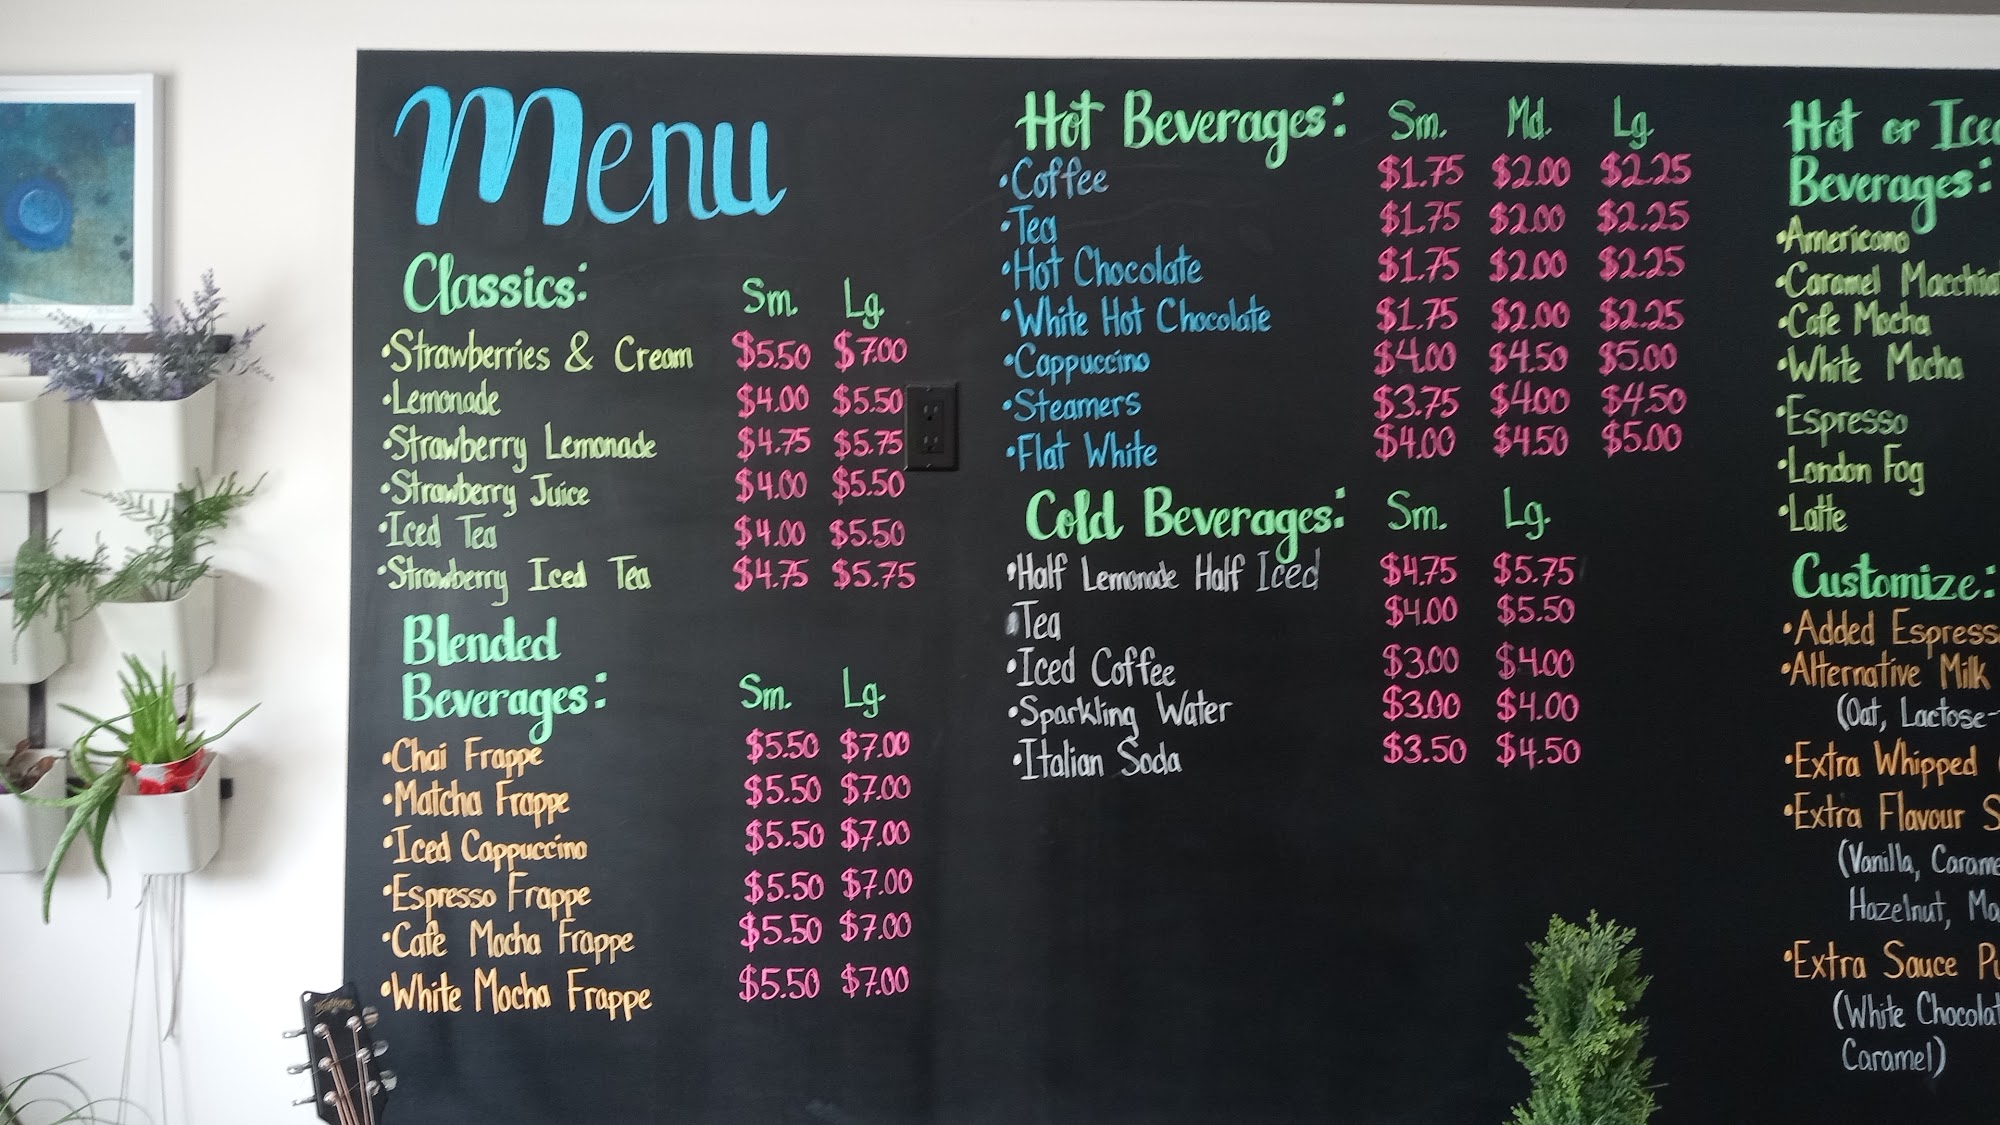 Menu
Classics: Sm. Lg.
•Strawberries & Cream $5.50 $7.00
•Lemonade $4.00 $5.50
•Strawberry Lemonade $4.75 $5.75
•Strawberry Juice $4.00 $5.50
•Iced Tea $4.00 $5.50
•Strawberry Iced Tea $4.75 $5.75
Blended
Beverages: Sm. Lg.
•Chai Frappe $5.50 $7.00
•Matcha Frappe $5.50 $7.00
•Iced Cappuccino $5.50 $7.00
•Espresso Frappe $5.50 $7.00
•Cafe Mocha Frappe $5.50 $7.00
•White Mocha Frappe $5.50 $7.00
Hot Beverages: Sm. Md. Lg.
•Coffee $1.75 $2.00 $2.25
•Tea $1.75 $2.00 $2.25
•Hot Chocolate $1.75 $2.00 $2.25
•White Hot Chocolate $1.75 $2.00 $2.25
•Cappuccino $4.00 $4.50 $5.00
•Steamers $3.75 $4.00 $4.50
•Flat White $4.00 $4.50 $5.00
Cold Beverages: Sm. Lg.
•Half Lemonade Half Iced $4.75 $5.75
•Tea $4.00 $5.50
•Iced Coffee $3.00 $4.00
•Sparkling Water $3.00 $4.00
•Italian Soda $3.50 $4.50
Hot or Iced
Beverages:
•Americano
•Caramel Macchiat
•Cafe Mocha
•White Mocha
•Espresso
•London Fog
•Latte
Customize:
•Added Espress
•Alternative Milk
(Oat, Lactose-
•Extra Whipped
•Extra Flavour S
(Vanilla, Carame
Hazelnut, Ma
•Extra Sauce Pu
(White Chocolat
Caramel)